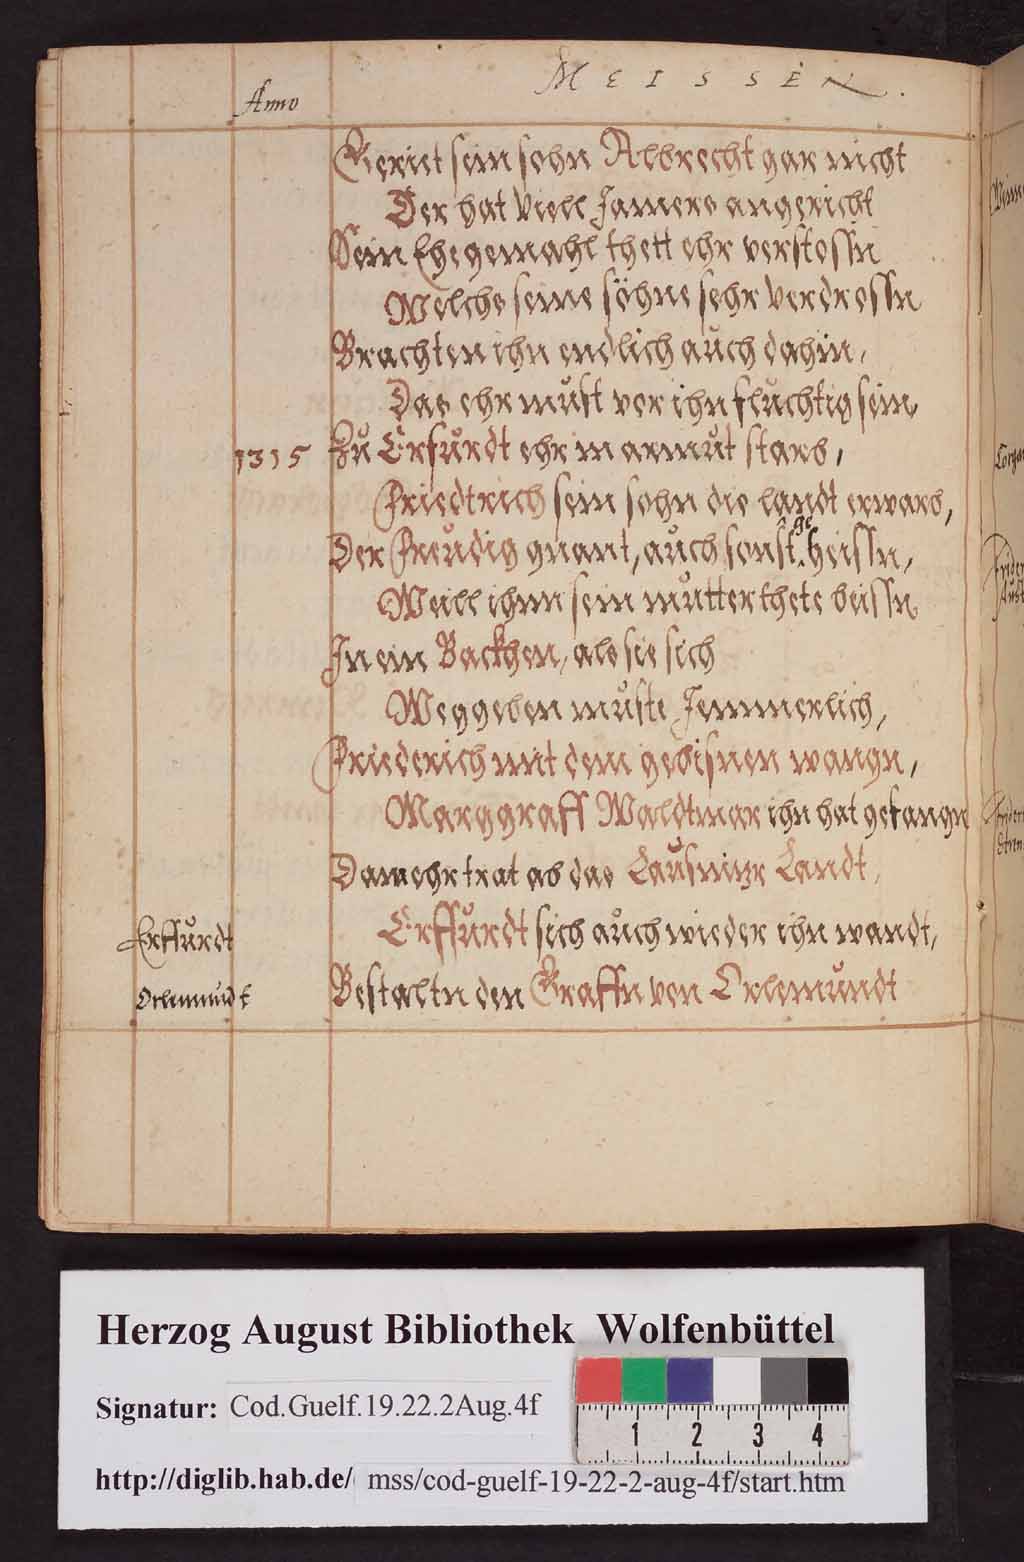 Anno
MEISSEN.
Geriet sein sohn Albrecht gar nicht
Der hat viell Jamers angericht
Sein Ehegemahl thett ehr verstossn
Welchs seine söhne sehr verdrossn
Brachten ihn endlich auch dahin,
Das ehr must vor ihn fluchtig sein,
1315 Zu Erfurdt ehr in armut starb,
Friedtrich sein sohn die landt erwarb,
Der Freudig gnant, auch sonst geheissn,
Weill ihm sein mutter thete beissn
In ein Backhen, als sie sich
Weggeben muste Jemmerlich,
Friederich mit dem gebisnen wangn,
Marggraff Waldtmar ihn hat gefangn
Dam ehr trat ab das Lausnitzr Landt,
Erffurdt
Erffurdt sich auch wieder ihn wandt,
Orlemundt
Bestaltn den Graffn von Orlemundt
Herzog August Bibliothek Wolfenbüttel
Signatur: Cod.Guelf.19.22.2Aug.4f
1 2 3 4
http://diglib.hab.de/ mss/cod-guelf-19-22-2-aug-4f/start.htm